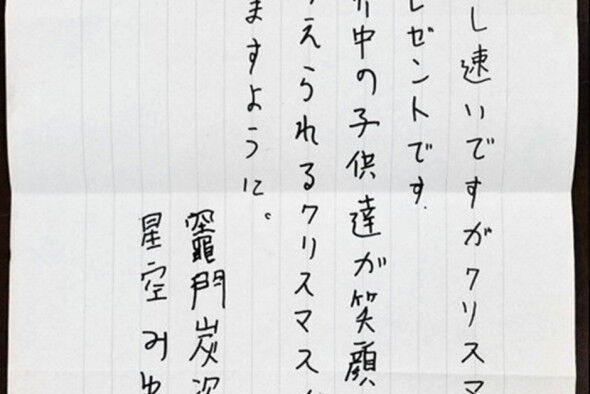 し速いですがクリスマ
レゼントです.
界中の子供達が笑顔
えられるクリスマス
ますように。
竈門炭治
星空みゆ